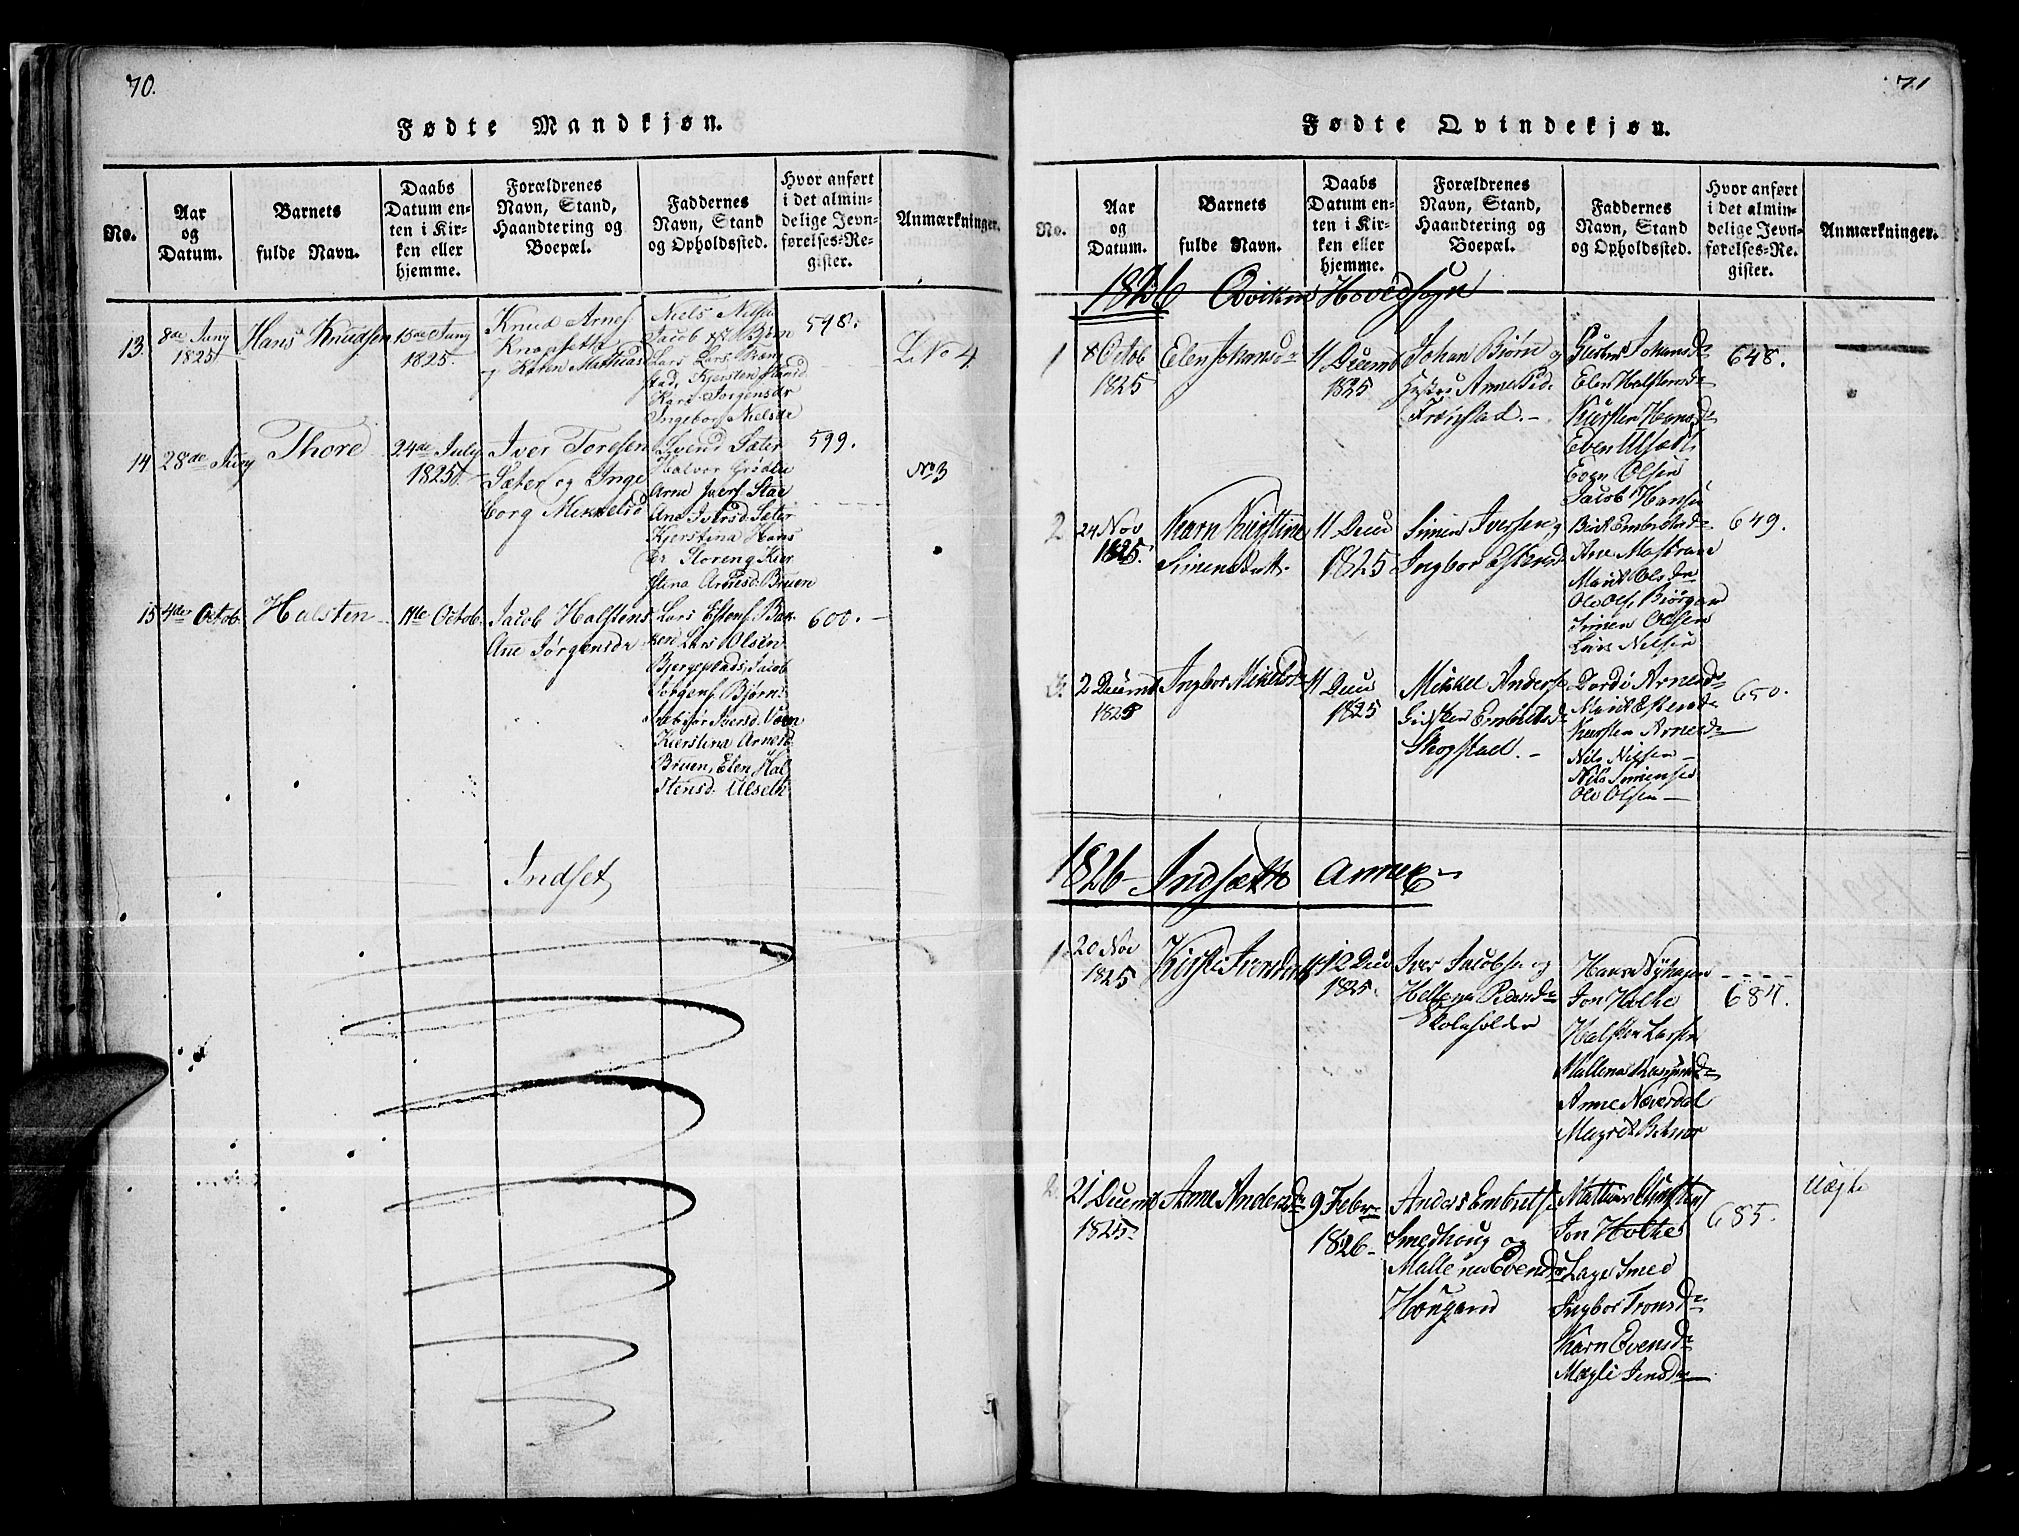 70.
Fødte Mandkjøn.
No.
Aar
og
Datum.
Barnets
fulde Navn.
Daabs
Datum en-
ten i Kir-
ken eller
hjemme.
Forældrenes
Navn, Stand,
Haandtering og
Boepæl.
Faddernes
Navn, Stand
og Opholdssted.
Hvor anført
i det almin-
delige Jevn-
førelses-Re-
gister.
Anmærkninger.
13.
8de Juny
1825
Hans Knudsen
15de Juny
1825.
Knud Arnes
og Karen Mathias
Niels Nilsen
Jacob Bjørn
Lars Lars
stad, Kjersten
Kari Jørgensdr
Ingebor Nielsdr
598.
L No 4
14
28de Juny
Thore
24de July
1825
Iver Toresen
Sæter og Inge
borg Mikkelsd
Svend Sæter
Halvor Grødlie
Arne Iversen
Ane Iversd. Sæter
Kjerstina Hans
dr Storeng Kier
stina Arnesd. Bruen
599.
No 3
15
4de Octob
Halsten
11te Octob.
Jacob Halstens
Ane Jørgensdr
Lars Estens. Bak
ken Lars Olsen
Bjergeplads, Jacob
Jørgens. Bjørn
Iversd. Voen
Kierstina Arnesd
Bruen, Elen Hal
stensd. Ulseth
600.
Indset
71
Fødte Qvindekjøn.
No.
Aar
og
Datum.
Barnets
fulde Navn.
Daabs
Datum en-
ten i Kir-
ken eller
hjemme.
Forældrenes
Navn, Stand,
Haandtering og
Boepæl.
Faddernes
Navn, Stand
og Opholdssted.
Hvor anført
i det almin-
delige Jevn-
førelses-Re-
gister.
Anmærkninger.
1826 Qvikne Hovedsogn
1
8 Octob
1825
Elen Johansdr
11 Decemb
1825
Johan Bjørn og
Hustru Arne
Frønstad.
Johansd
Elen Halstensd
Kiersten Hansd
Eben Ulsæt
Even Olsen
Jacob Hansen
648.
2
24 Nov
1825.
Karn Kirstine
Simensdatt.
11 Decem
1825
Simen Iversen og
Ingbor Estensd
Berit Embretsd
Ane
Marit Olsdr
Ole Ols. Biørgan
Simen Olsen
Lars Nilsen
649.
3.
2 Decemb
1825
Ingbor Mikkelsdr
11 Decem
1825
Mikkel Anders
Embretsd
Skogstad.
Dordi Arnesd
Marit Estensd
Kiersten Arnesd
Nils Nilsen
Nils Simensen
Ole Olsen
650.
1826 Indsætte Annex
1.
20 Nov
1825
Kirsti Iversdatt
12 Decem
1825.
Iver Jacobsen og
Hellena Pedersd
Skoleholder
Hans
Jon Holte
Halsten Larsen
Mallena
Anne Næverdal
Magrit
684.
2.
21 Decemb
1825
Anne Andersdr
9 Febr
1826
Anders Embretsen
Smedhoug og
Mallena Evensdr
Hougene
Mathias
Jon Holte
Lage Smed
Ingbor Tronsd
Karn Evensd
Magli Jensd
685.
Uægte